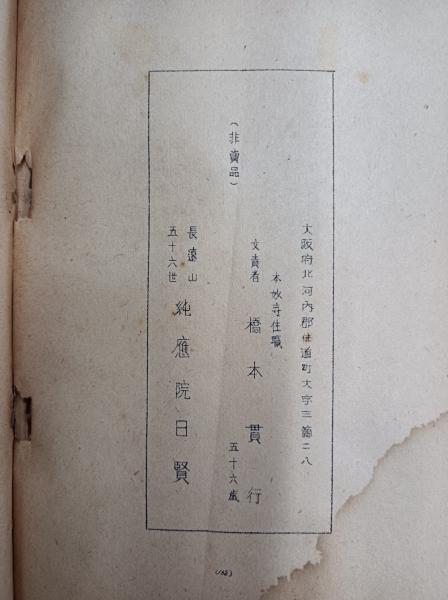 大阪府北河內郡住道町大字三箇二八
本妙寺住職
文責者 橋本貫行
五十六歲
(非賣品)
長遠山
五十六世 純應院日賢